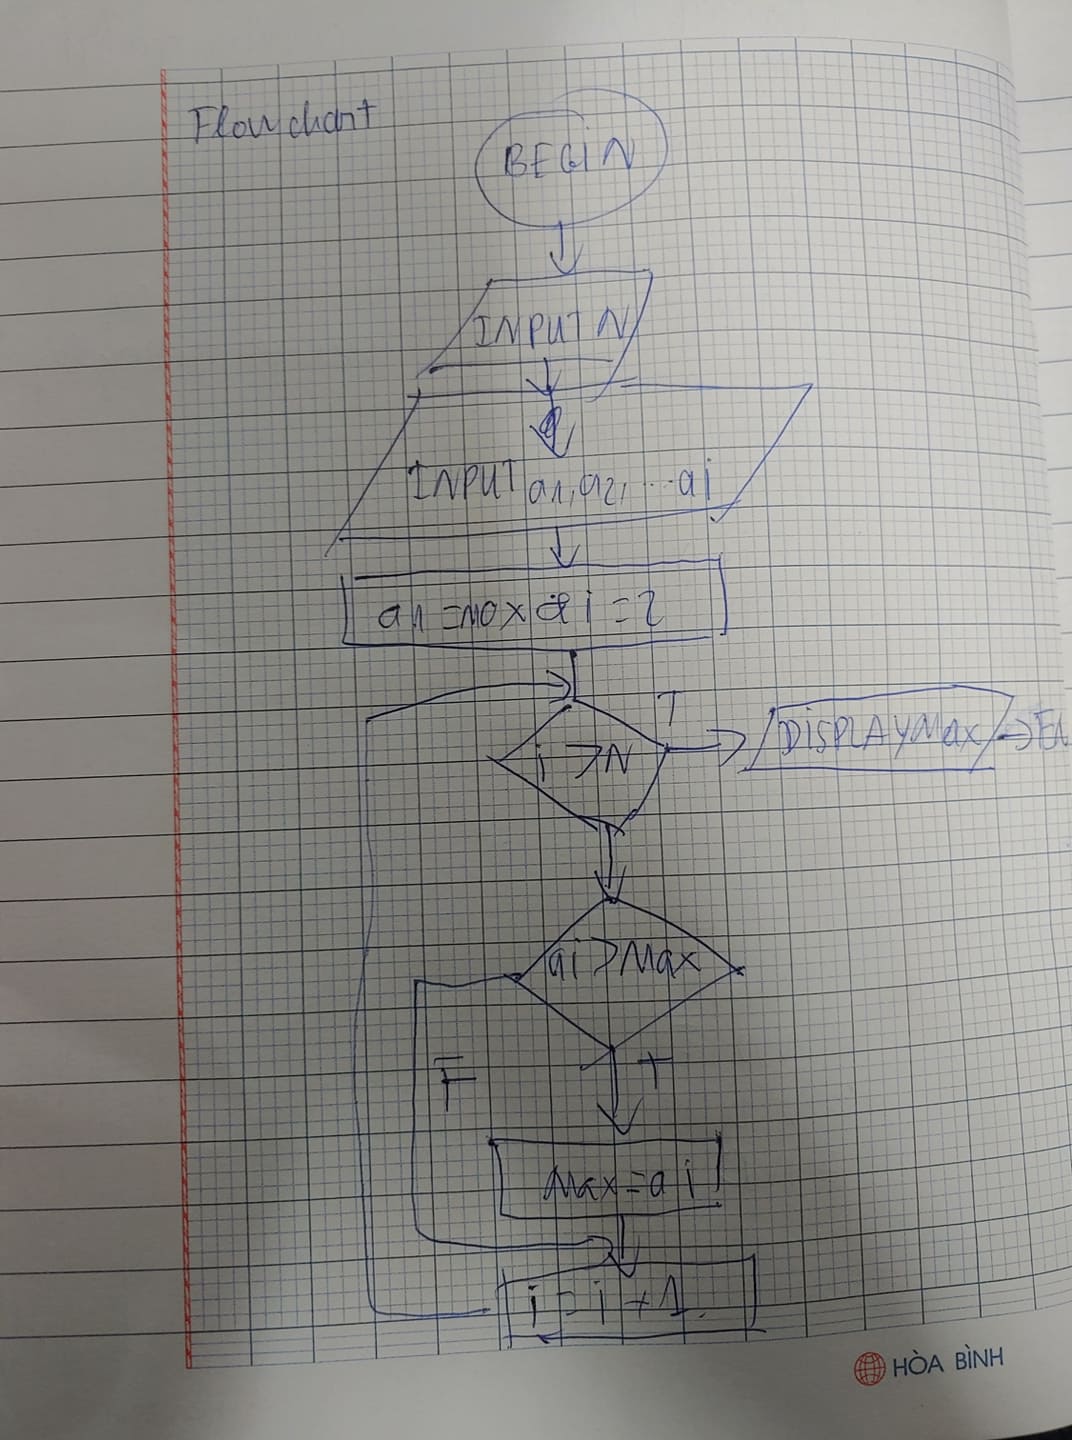 Flowchart
BEGIN
INPUT N
INPUT a1, a2, ... ai
a1 = max i = 2
i > N
T
DISPLAY Max
ai > Max
F
T
Max = ai
i = i + 1
HÒA BÌNH